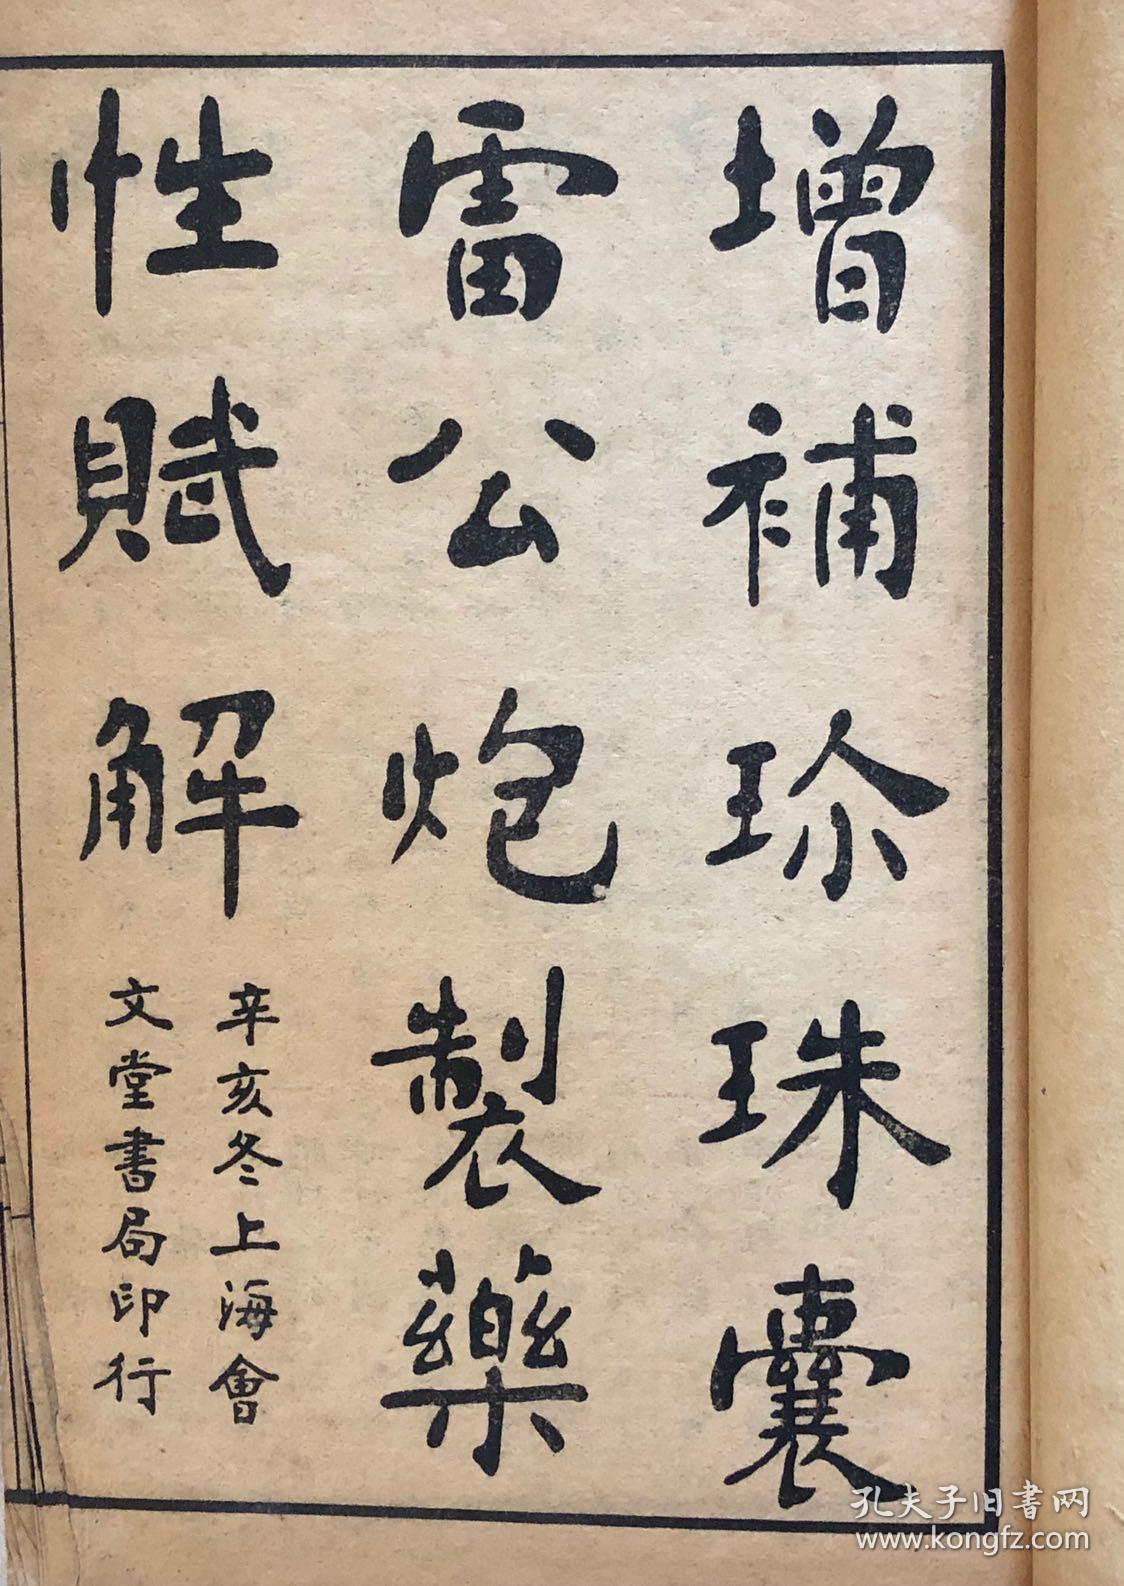 增補珍珠囊
雷公炮製藥
性賦解
辛亥冬上海會
文堂書局印行
孔夫子旧書网
www.kongfz.com